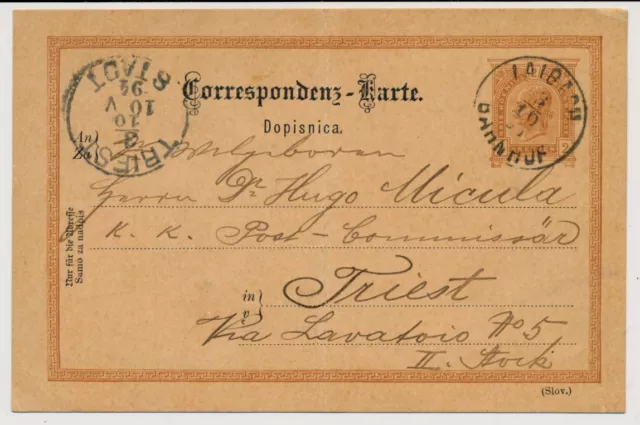 Correspondenz-Karte.
Dopisnica.
LAIBACH
BAHNHOF
2
TRIEST
STADT
3
10
V
94
An
Za
Wolgeboren
Herrn Dr Hugo Micula
K. K. Post-Commissär
in
v
Triest
Via Lavatoio No 5
II. Stock
Nur für die Adresse
Samo za nadpis
(Slov.)